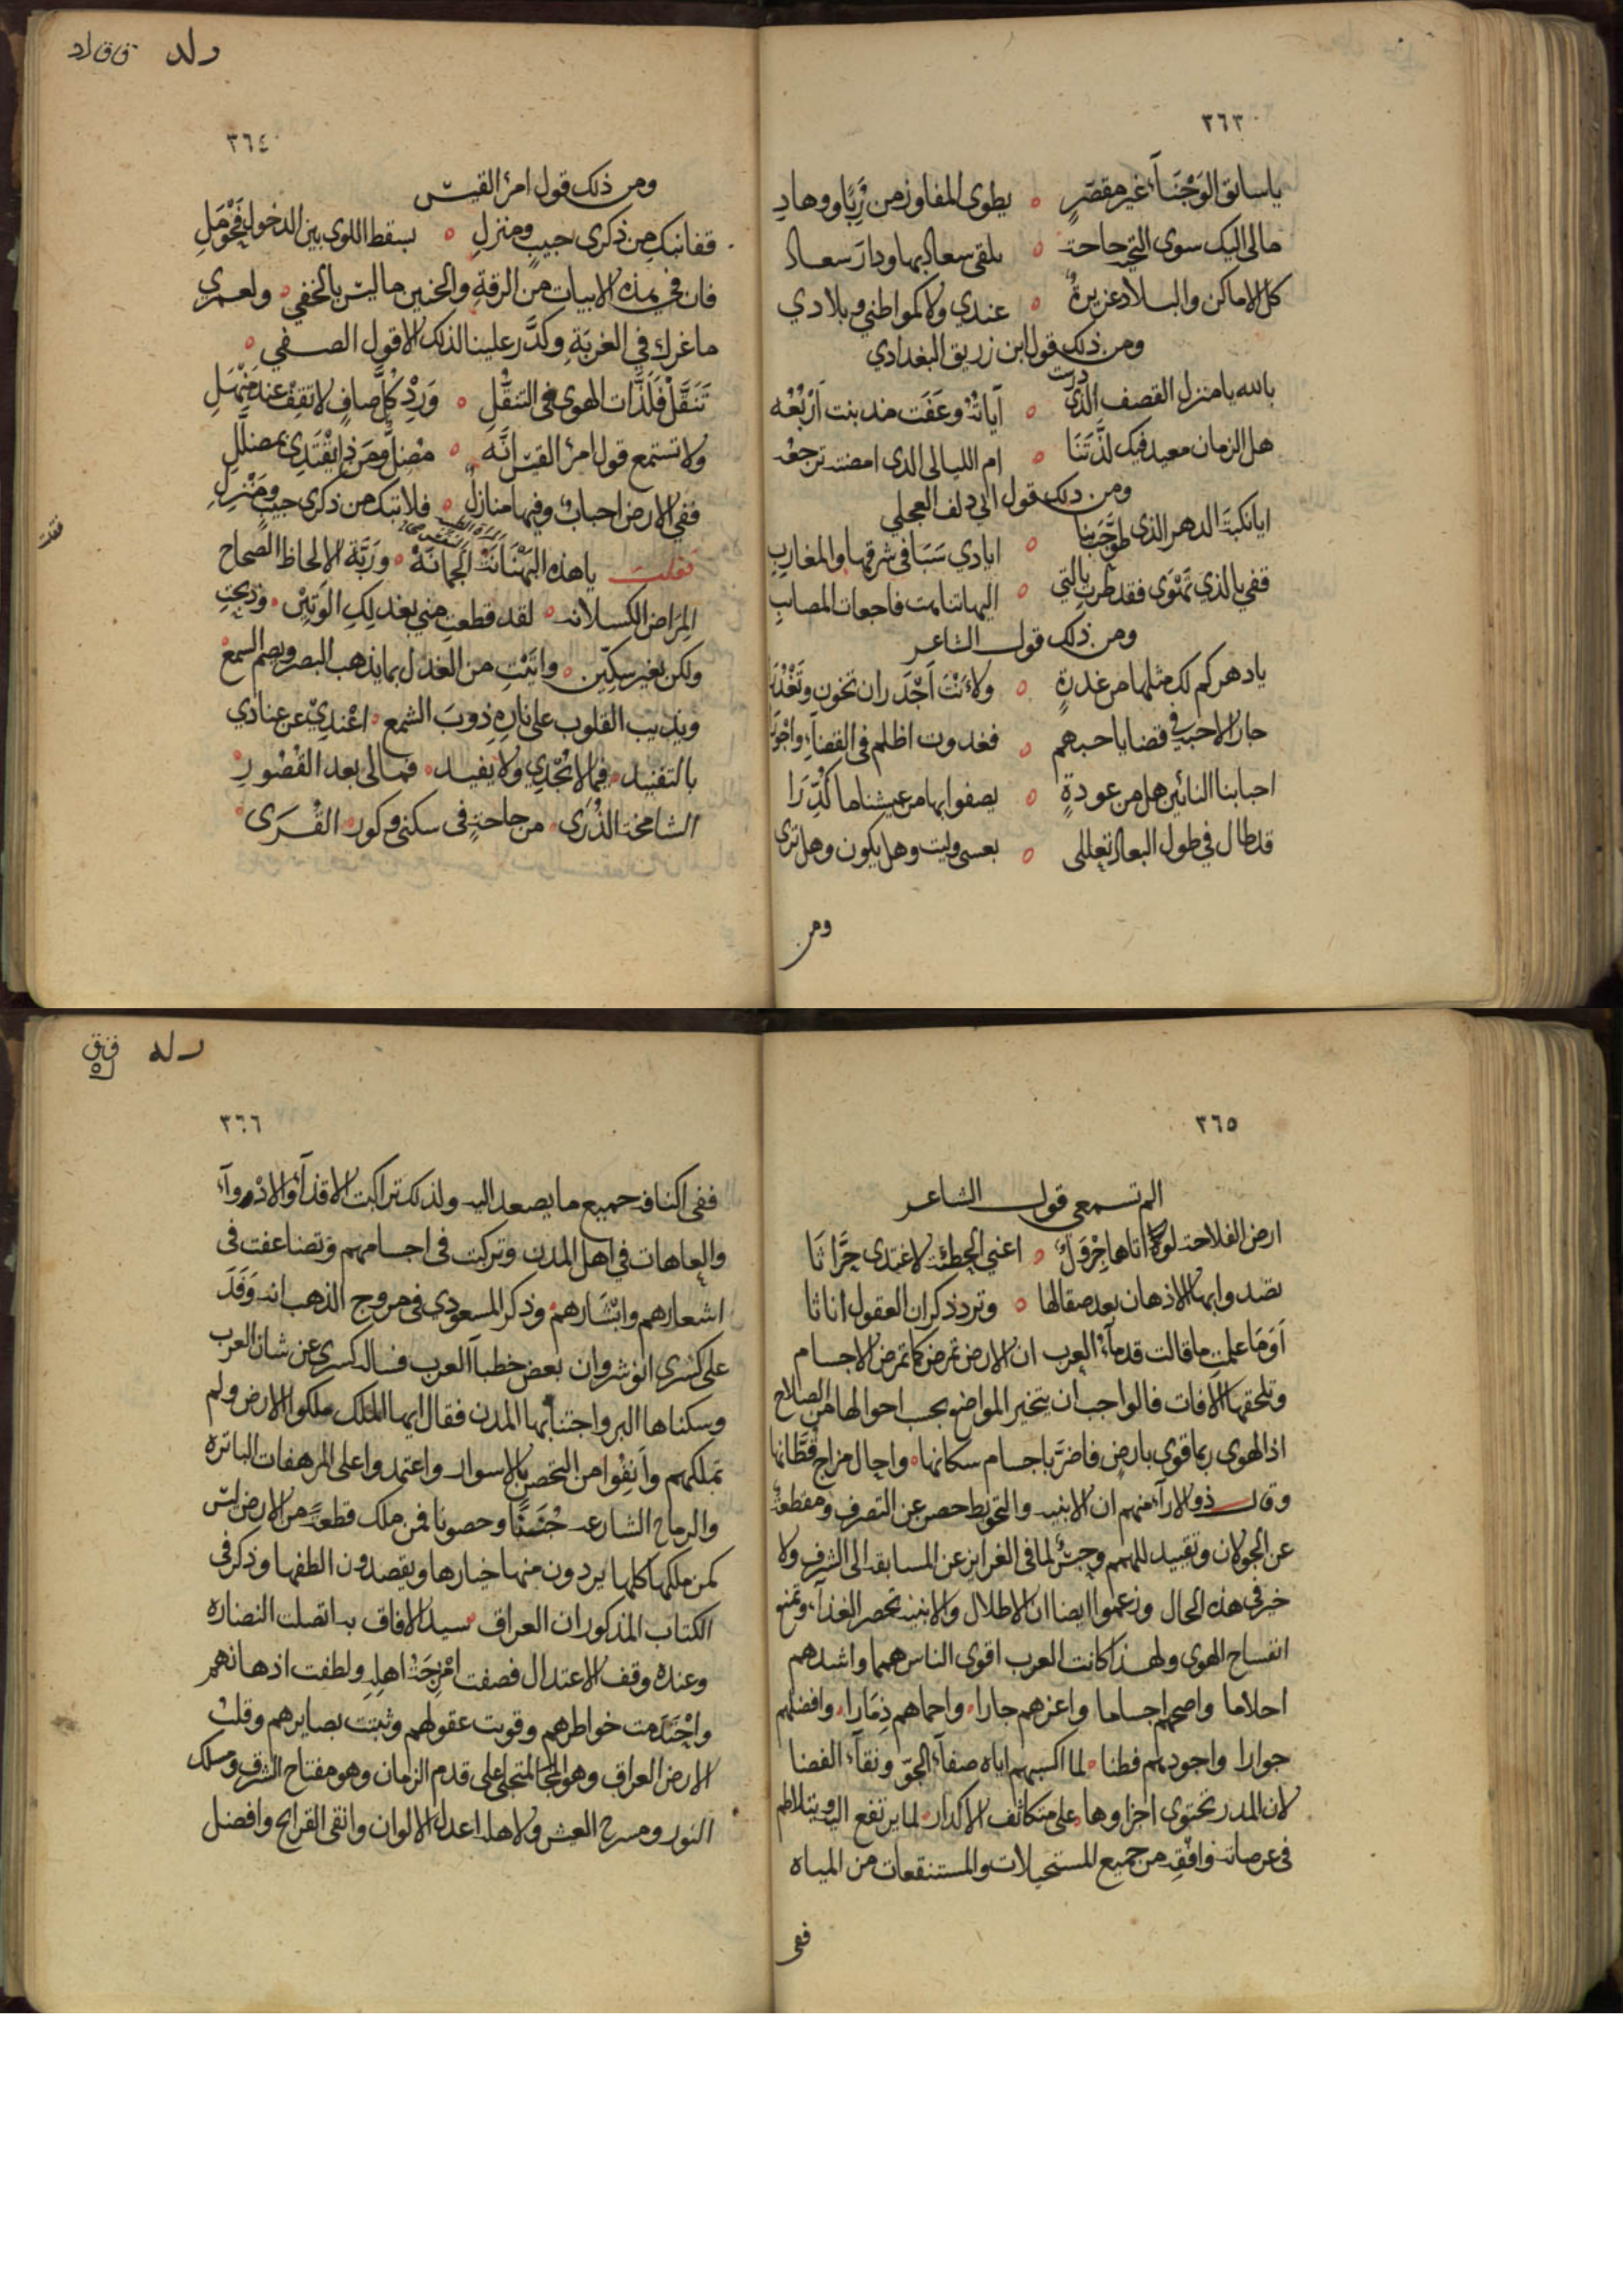 ٣٦٣
ياسائق الوَجْنَآء غير مقصّرٍ ٥ يطوى المفاوز من رُبًا ووهادِ
مالى اليك سوى التحية حاجة ٥ تلقى سعاد بها ودار سعاد
كل الاماكن والبلاد عزيزةٌ ٥ عندي ولا كمواطني وبلادي
ومن ذلك قول ابن زريق البغدادي
بالله يا منزل القصف الذى درست ٥ آياته وعَفَت مذ بنت أرْبُعُه
هل الزمان معيد فيك لذّتَنا ٥ ام الليالى الذى امضته ترجعه
ومن ذلك قول ابي دلف العجلي
ايا نكبة الدهر الذى طوّحت بنا ٥ ايادي سَبَا في شرقها والمغاربِ
قفي بالذي تَهْوَى فقد طرت بالتي ٥ اليها تناهت فاجعات المصايبِ
ومن ذلك قول الشاعر
يادهركم لك مثلها من غدرةٍ ٥ ولأنت اَجْدَر ان تخون وتَغْدُرَا
جار الاحبة في قضايا حبهم ٥ فغدوت اظلم فى القضآء واجْوَرا
احبابنا النائين هل من عودةٍ ٥ يصفو ابها من عيشنا ما كُدِّرَا
قد طال في طول البعاد تعللى ٥ بعسى وليت وهل يكون وهل ترى
ومن
٣٦٤
ومن ذلك قول امرُ القيس
قفانبكِ من ذكرى حبيبٍ ومنزلِ ٥ بسقط اللوى بين الدخول فَحَوْمَلِ
فان في هذه الابيات من الرقةِ والحنين ماليس بالخفي ولعمري
ما غرك في الغربَةِ وكدَّر علينا لذلك الا قول الصفي
تَنَقَّلْ فَلَذَّات الهوى فى التنقُّلِ ٥ وَرِدْ كُلَّ صافٍ لا تقف عند مَنْهَلِ
ولا تستمع قول امرُ القيس اِنَّه ٥ مُضلٌّ ومَن ذا يقْتَدِى بمضلّلِ
ففي الارض احبابٌ وفيها منازلٌ ٥ فلا تبك من ذكرى حبيبٍ ومنْزِلِ
فقلت ياهذه البَهْنَانَة الجمانَة ورَبَّة الالحاظ الصحاح
المِراض الكسلانه لقد قطعتِ مني بعذلِكِ الوَتِيْن وذبحتِ
ولكن بغير سكِّين واتيْتِ من العذل بما يذهب البصر ويصم السمع
ويذيب القلوب على نارِهِ ذوبَ الشمع اعْندِيْ عن عنادي
بالتفنيد فيما لا يُجْدِي ولا يفيد فمالى بعد القُصُورِ
الشامخة الذُرَى من حاجةٍ فى سكنى وكور القُرَى
٣٦٥
الم تسمعي قول الشاعر
ارض الفلاحة لو اتاها جَرْوَلٌ ٥ اعني الحطيئة لاغتدى حرَّاثَا
تصدوابها الاذهان بعد صقالها ٥ وترد ذكران العقول اناثا
اَوَمَا علمتِ ما قالت قدمآء العرب ان الارض تمرض كما تمرض الاجسام
وتلحقها الافات فالواجب ان يتخير المواضع بحسب احوالها من الصلاح
اذ الهوى ربما قوى بارض فاضرّ باجسام سكانها واحال مزاج قُطَّانها
وقال ذو الارآء منهم ان الابنيه والتحويط حصر عن التصرف ومقطعة
عن الجولان وتقييد للهمم وحبسٌ لما فى الغرايز عن المسابقه الى الشرف ولا
خير فى هذه الحال وزعموا ايضا ان الاطلال والابنيه تحصر الغذآء وتمنع
انفساح الهوى ولهذا كانت العرب اقوى الناس همما واشدهم
احلاما واصحهم اجساما واعزهم جارا واحماهم ذِمَارا وافضلهم
جوارا واجودهم فطنا لما اكسبهم اياه صفآء الجوّ ونقآء الفضا
لان المدر تحتوى اجزاوها على متكاثف الاكدار لما يرتفع اليه ويتلاطم
فى عرصاته وافقِه من جميع المستحيلات والمستنقعات من المياه
ففى
٣٦٦
ففى اكنافه جميع ما يصعد اليه ولذلك تراكبت الاقذآء والادْوآء
والعاهات فى اهل المدن وتركت فى اجسامهم وتضاعفت فى
اشعارهم وابْشَارهم وذكر المسعودي فى مروج الذهب انه وَفَدَ
على كسرى انوشروان بعض خطبآ العرب فساله كسرى عن شان العرب
وسكناها البر واجتنابها المدن فقال ايها الملك ملكوا الارض ولم
تملكهم واَنِفُوا من التحصن بالاسوار واعتمدوا على المرهفات الباتره
والرماح الشارعه جُنَنًا وحصونا فمن ملك قطعةً من الارض ليس
كمن ملكها كلها يردون منها خيارها ويقصدون الطفها وذكر فى
الكتاب المذكور ان العراق سيد الافاق به اتصلت النضاره
وعنده وقف الاعتدال فصفت امْزِجَتْ اهلِهِ ولطفت اذهانهم
واحْتَدمت خواطرهم وقويت عقولهم وثبتت بصايرهم وقلبُ
الارض العراق وهو المجتلى على قدم الزمان وهو مفتاح الشرق ومسلك
النور ومسرح العيش ولاهله اعدل الالوان وانقى القرايح وافضل